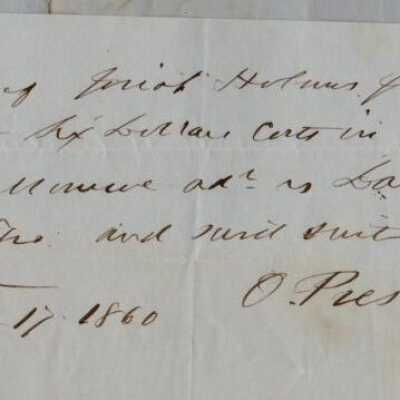 Josiah Holmes
Six Dollars Costs in
Monroe adr vs Da
and said suit
17 1860 O. Pres